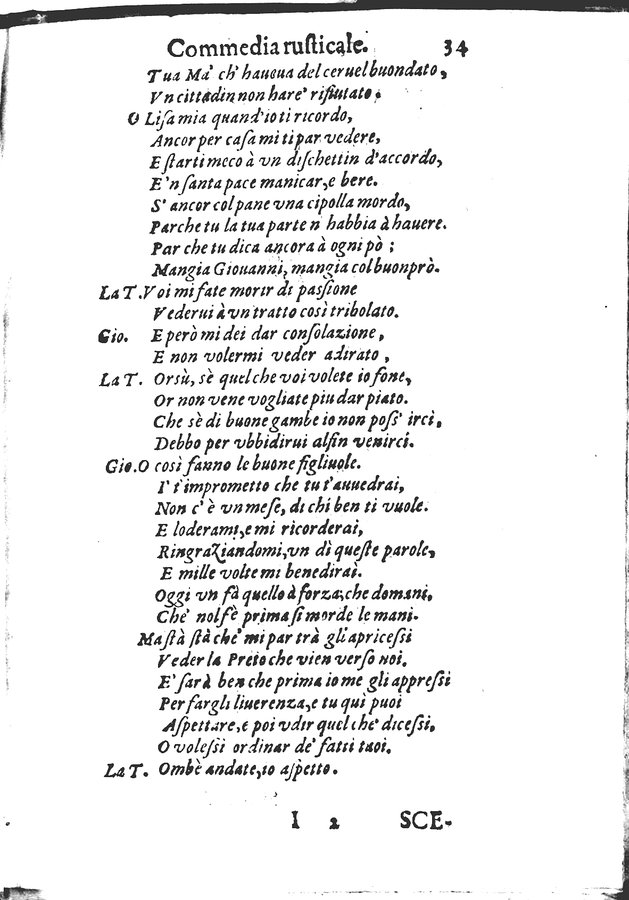 Commedia rusticale. 34
Tua Ma' ch' haueua del ceruel buondato,
Vn cittadin non hare' rifiutato.
O Lisa mia quand'io ti ricordo,
Ancor per casa mi ti par vedere,
E starti meco à vn dischettin d'accordo,
E'n santa pace manicar, e bere.
S' ancor col pane vna cipolla mordo,
Par che tu la tua parte n habbia à hauere.
Par che tu dica ancora à ogni pò ;
Mangia Giouanni, mangia col buon prò.
La T. Voi mi fate morir di passione
Vederui à vn tratto così tribolato.
Gio. E però mi dei dar consolazione,
E non volermi veder adirato ,
La T. Orsù, sè quel che voi volete io fone,
Or non vene vogliate piu dar piato.
Che sè di buone gambe io non poss' irci,
Debbo per vbbidirui alfin venirci.
Gio. O così fanno le buone figliuole.
I' t'imprometto che tu t'auuedrai,
Non c' è vn mese, di chi ben ti vuole.
E loderami, e mi ricorderai,
Ringraziandomi, vn dì queste parole,
E mille volte mi benedirai.
Oggi vn fà quello à forza, che domani,
Che' nol fè prima si morde le mani.
Ma stà stà che' mi par trà gli apricessi
Veder la Preto che vien verso noi.
E' sarà ben che prima io me gli appressi
Per fargli liuerenza, e tu quì puoi
Aspettare, e poi vdir quel che' dicessi,
O volessi ordinar de' fatti tuoi.
La T. Ombè andate, io aspetto.
I 2 SCE-